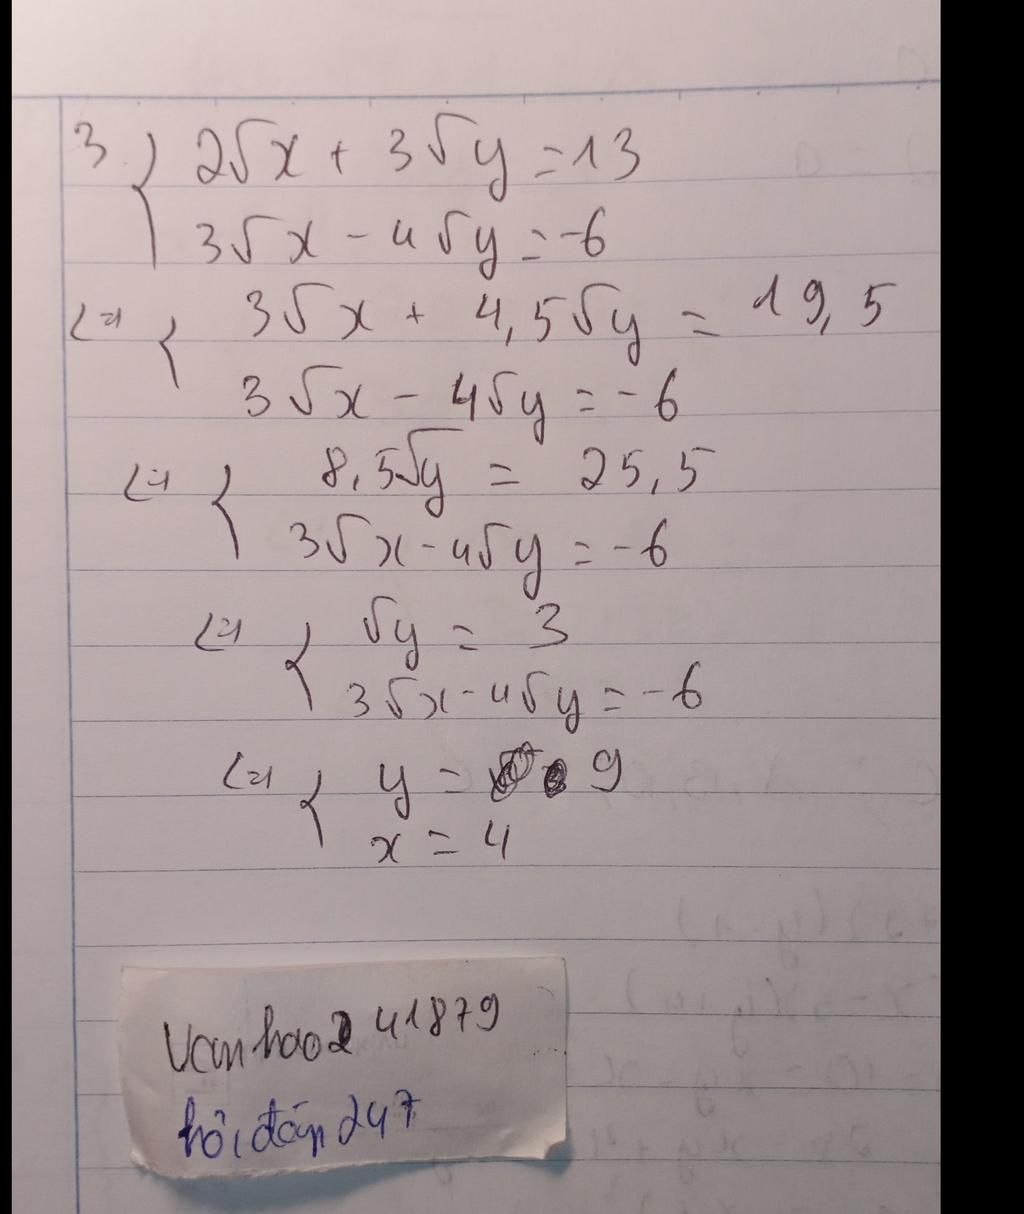 3 { 2√x + 3√y = 13
3√x - 4√y = -6
<=> { 3√x + 4,5√y = 19,5
3√x - 4√y = -6
<=> { 8,5√y = 25,5
3√x - 4√y = -6
<=> { √y = 3
3√x - 4√y = -6
<=> { y = 9
x = 4
Vanhao2 41879
hỏi đáp 247